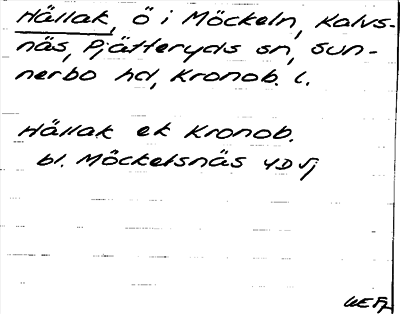 Hällak, ö i Möckeln, Kalvs-
näs, Pjätteryds sn, Sun-
nerbo hd, Kronob. l.
Hällak ek Kronob.
bl. Möckelsnäs 4D vj